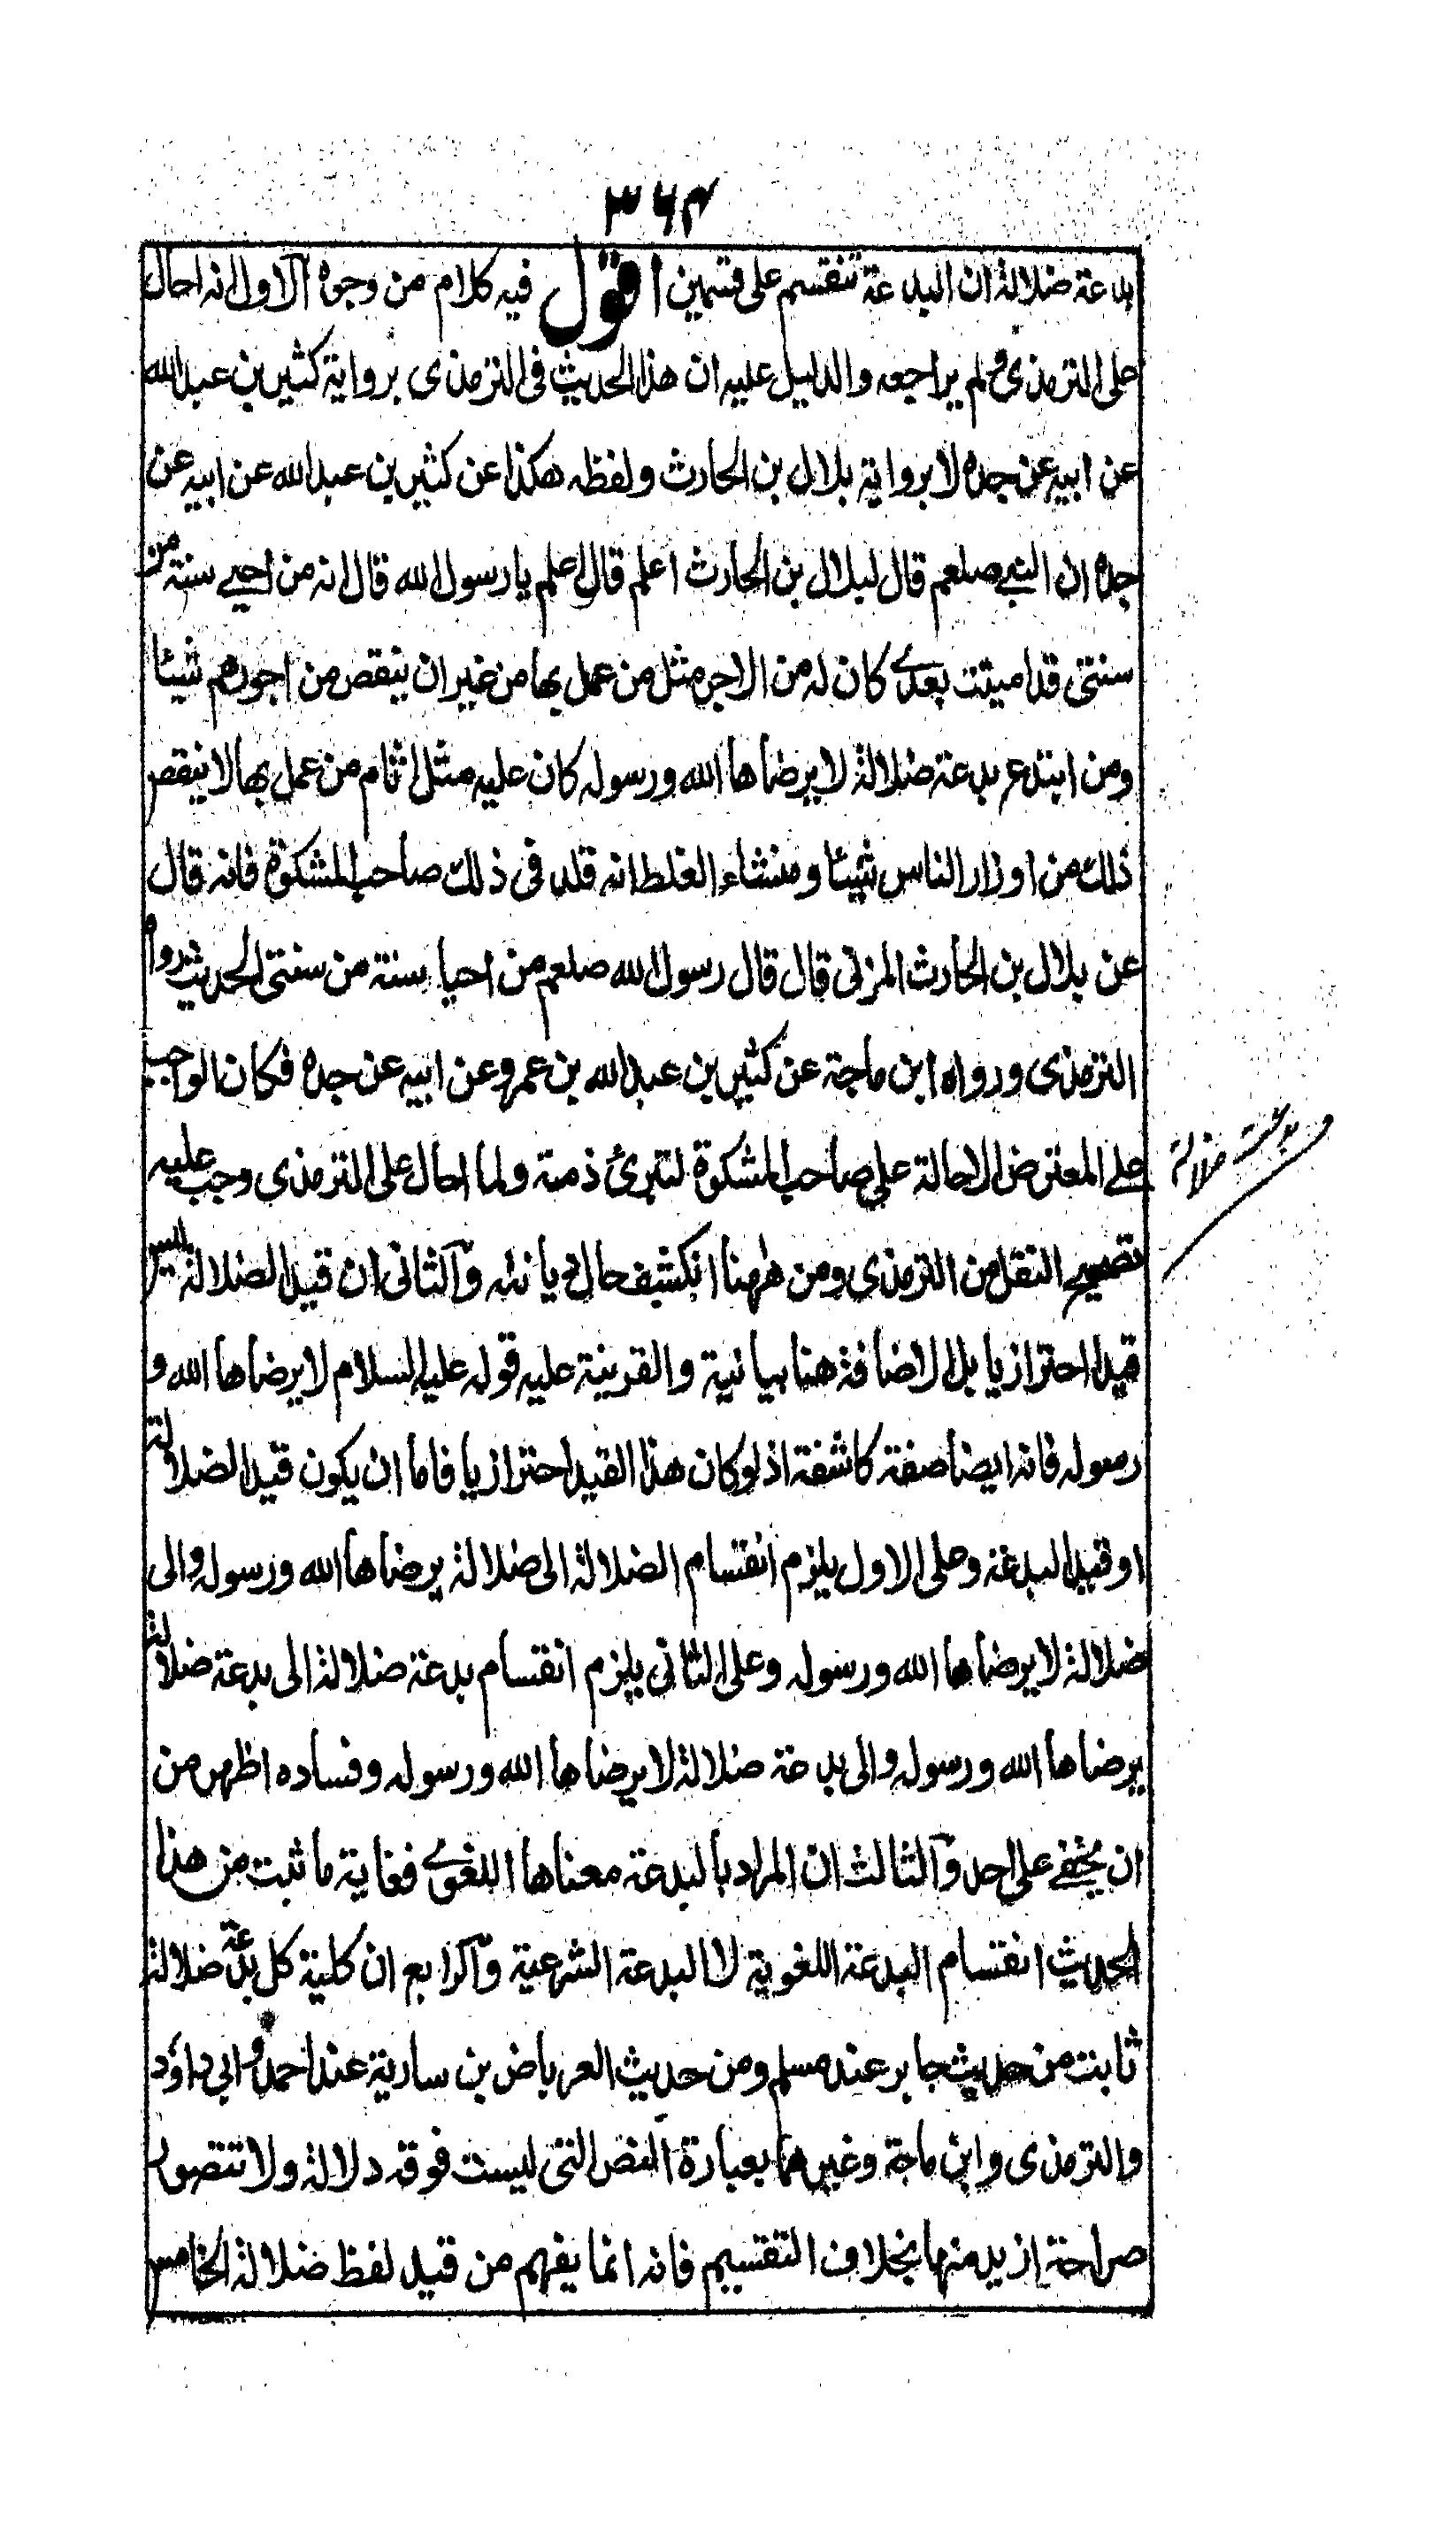 ۳۶۴
بدعة ضلالة ان البدعة تنقسم على قسمين اقول فيه كلام من وجوه الاول انه احال
على الترمذي ولم يراجعه والدليل عليه ان هذا الحديث في الترمذي برواية كثير بن عبد الله
عن ابيه عن جده لا برواية بلال بن الحارث ولفظه هكذا عن كثير بن عبد الله عن ابيه عن
جده ان النبي صلعم قال لبلال بن الحارث اعلم قال اعلم يا رسول الله قال انه من احيى سنة من
سنتي قد اميتت بعدي كان له من الاجر مثل من عمل بها من غير ان ينقص من اجورهم شيئا
ومن ابتدع بدعة ضلالة لا يرضاها الله ورسوله كان عليه مثل اثام من عمل بها لا ينقص
ذلك من اوزار الناس شيئا ومنشاء الغلط انه قلد في ذلك صاحب المشكوة فانه قال
عن بلال بن الحارث المزني قال قال رسول الله صلعم من احيا سنة من سنتي الحديث رواه
الترمذي ورواه ابن ماجة عن كثير بن عبد الله بن عمرو عن ابيه عن جده فكان الواجب
على المعترض الاحالة على صاحب المشكوة لتبرئ ذمته ولما احال على الترمذي وجب عليه
تصحيح النقل من الترمذي ومن ههنا انكشف حال ديانته والثاني ان قيد الضلالة ليس
قيدا احترازيا بل الاضافة هنا بيانية والقرينة عليه قوله عليه السلام لا يرضاها الله و
رسوله فانه ايضا صفة كاشفة اذ لو كان هذا القيد احترازيا فاما ان يكون قيد الضلالة
او قيد البدعة وعلى الاول يلزم انقسام الضلالة الى ضلالة يرضاها الله ورسوله والى
ضلالة لا يرضاها الله ورسوله وعلى الثاني يلزم انقسام بدعة ضلالة الى بدعة ضلالة
يرضاها الله ورسوله والى بدعة ضلالة لا يرضاها الله ورسوله وفساده اظهر من
ان يخفى على احد والثالث ان المراد بالبدعة معناها اللغوي فغاية ما ثبت من هذا
الحديث انقسام البدعة اللغوية لا البدعة الشرعية والرابع ان كلية كل بدعة ضلالة
ثابت من حديث جابر عند مسلم ومن حديث العرباض بن سارية عند احمد وابي داود
والترمذي وابن ماجة وغيرهما بعبارة النص التي ليست فوقه دلالة ولا تتصور
صراحة ازيد منها بخلاف التقسيم فانه انما يفهم من قيد لفظ ضلالة الخامس
و بدعت ضلالة